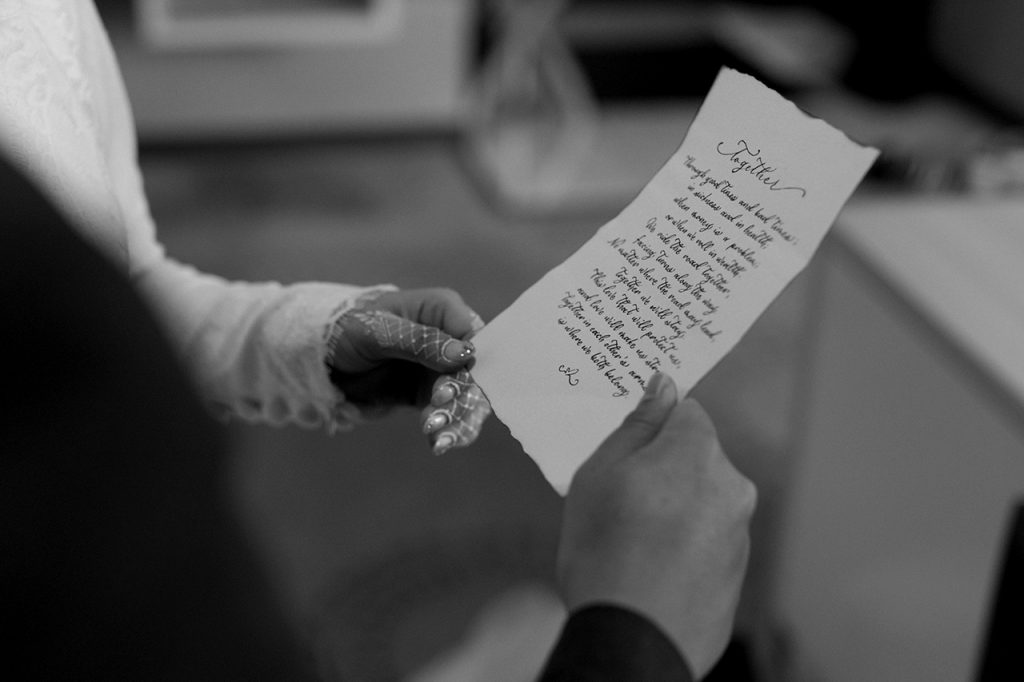 Together
Through good times and bad times,
in sickness and in health,
when money is a problem
or when we roll in wealth
We ride the road together,
facing times along the way
No matter where the road may lead,
together we will stay
This love that will protect us,
and love will make us strong
Together in each other's arms
is where we both belong.